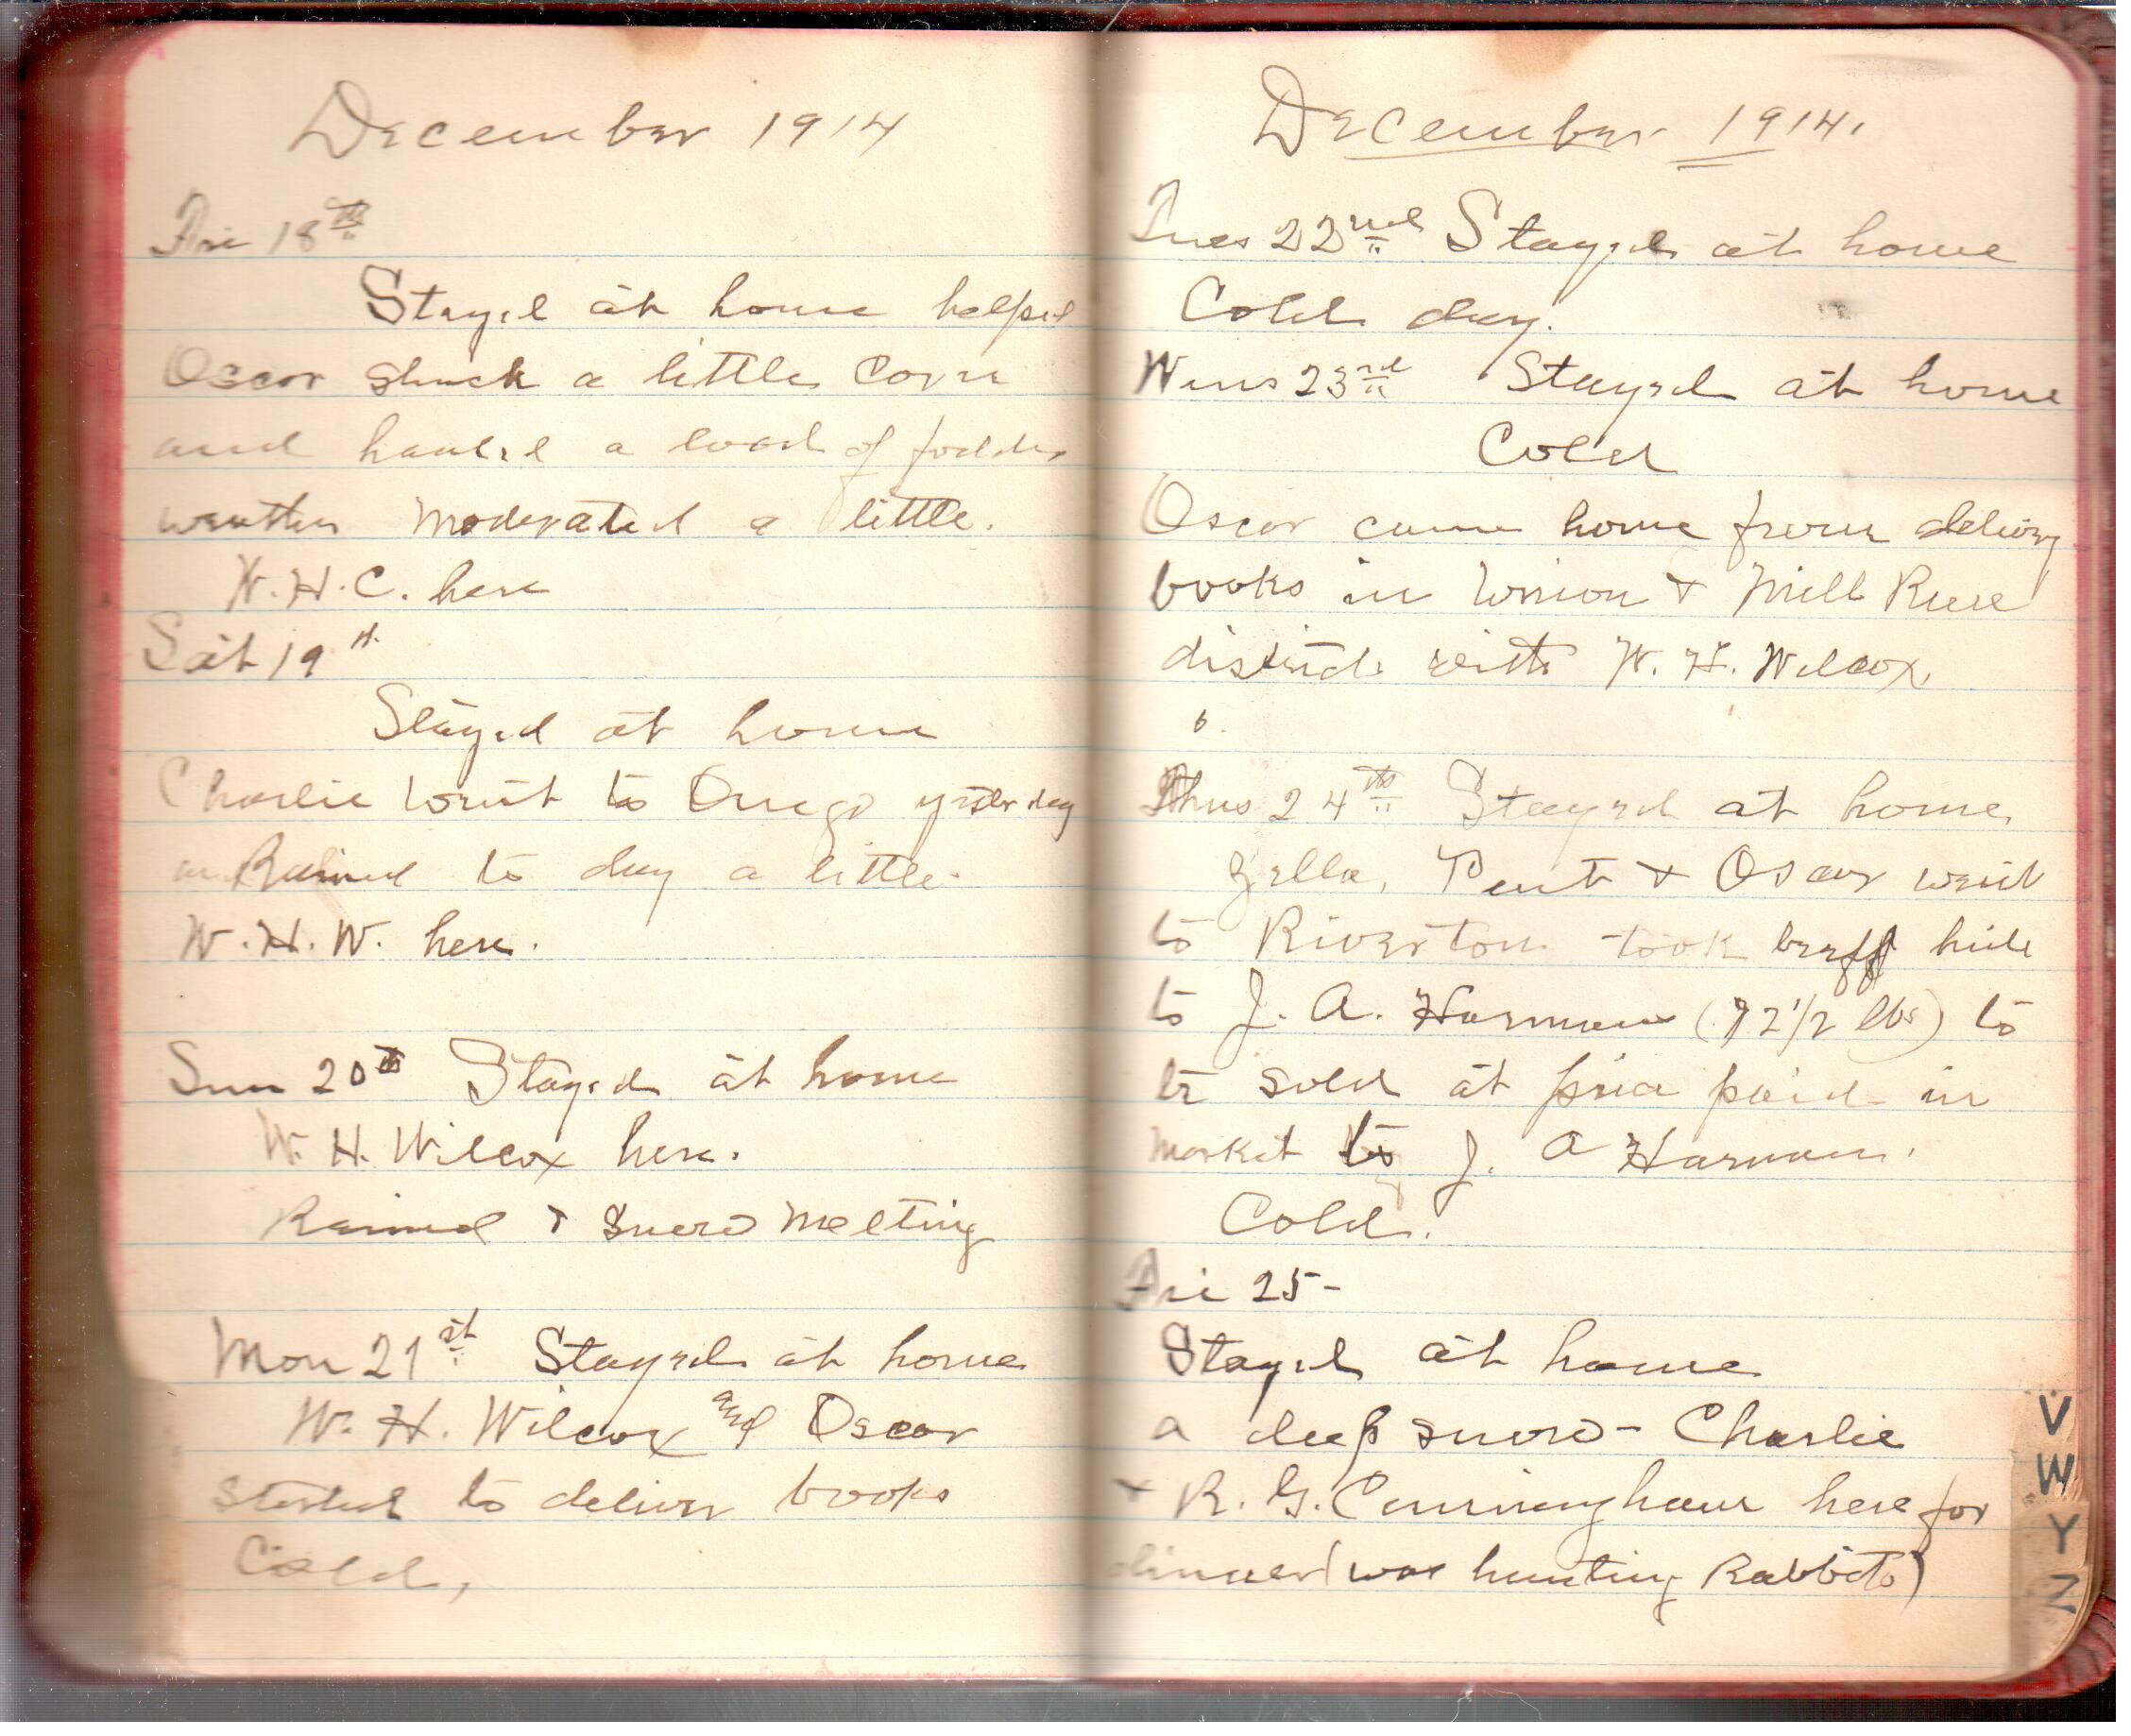 December 1914
Fri 18th
Stayed at home helped
Oscar shuck a little corn
and hauled a load of fodder
weather moderated a little.
W. H. C. here
Sat 19th
Stayed at home
Charlie went to Onego yesterday
Rained to day a little.
W. H. W. here.
Sun 20th Stayed at home
W. H. Wilcox here.
Rained & snow melting
Mon 21st Stayed at home
W. H. Wilcox and Oscar
started to deliver books
Cold,
December 1914.
Tues 22nd Stayed at home
Cold day.
Wens 23rd Stayed at home
Cold
Oscar came home from delivry
books in Union & Mill Run
districts with W. H. Wilcox.
Thus 24th Stayed at home.
Zella, & Oscar went
to Riverton took beef hide
to J. A. Harman (72 1/2 lbs) to
be sold at price paid in
market J. A Harman.
Cold.
Fri 25-
Stayed at home
a deep snow - Charlie
& R. G. Cunningham here for
dinner (was hunting Rabbits)
V
W
Y
Z